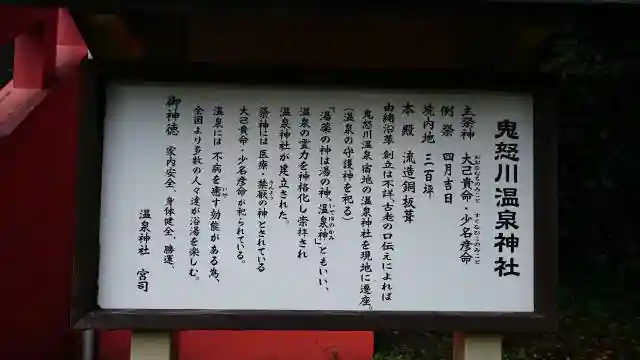 鬼怒川温泉神社
主祭神　大己貴命・少名彦命
おおなむちのみこと　すくなひこのみこと
例祭　四月吉日
境内地　三百坪
本殿　流造銅板葺
由緒沿革　創立は不詳、古老の口伝えによれば
鬼怒川温泉　宿地の温泉神社を現地に遷座。
(温泉の守護神を祀る)
「湯薬の神は湯の神、温泉神」ともいい、
いでゆのかみ
温泉の霊力を神格化し崇拝され
温泉神社が建立された。
祭神には医療・禁厭の神とされている
きんよう
大己貴命・少名彦命が祀られている。
温泉には　不病を癒す効能がある為、
いや
全国より多数の人々達が浴湯を楽しむ。
御神徳　家内安全、身体健全、勝運、
温泉神社　宮司